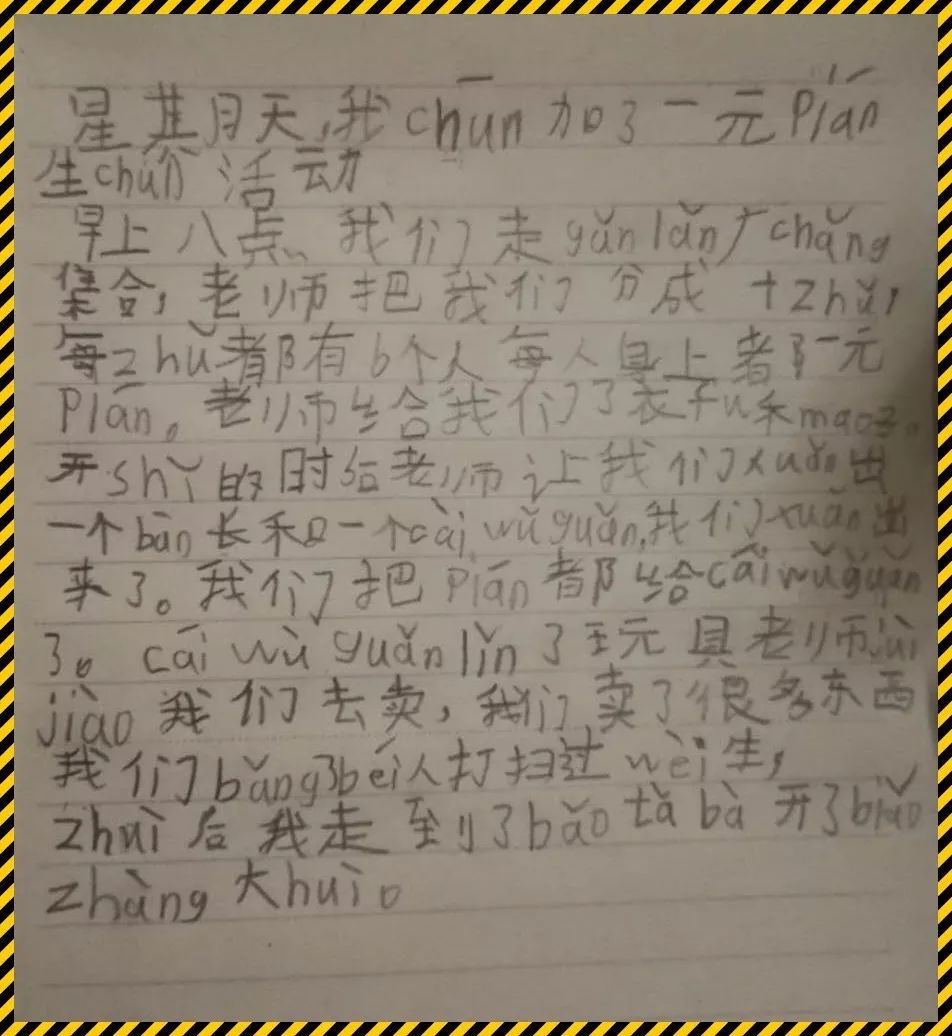 星其月天,我chūn加了一元Pián
生chún活动
早上八点、我们走gǎnlǎn广chǎng
集合,老师把我们分成十zhǔ,
每zhǔ都有6个人每人身上都一元
Pián。老师给我们了衣子和maoz。
开shǐ的时后老师让我们xuǎn出
一个bān长和一个cái wǔ guǎn,我们xuǎn出
来了。我们把Pián都给cái wǔ guǎn
了。cái wù guǎn lǐn了玩具老师jùi
jiào我们去卖,我们卖了很多东西
我们bāng了béi人打扫过wèi生,
zhuì后我走到了bǎo tǎ bà开了biǎo
zhàng大huì。